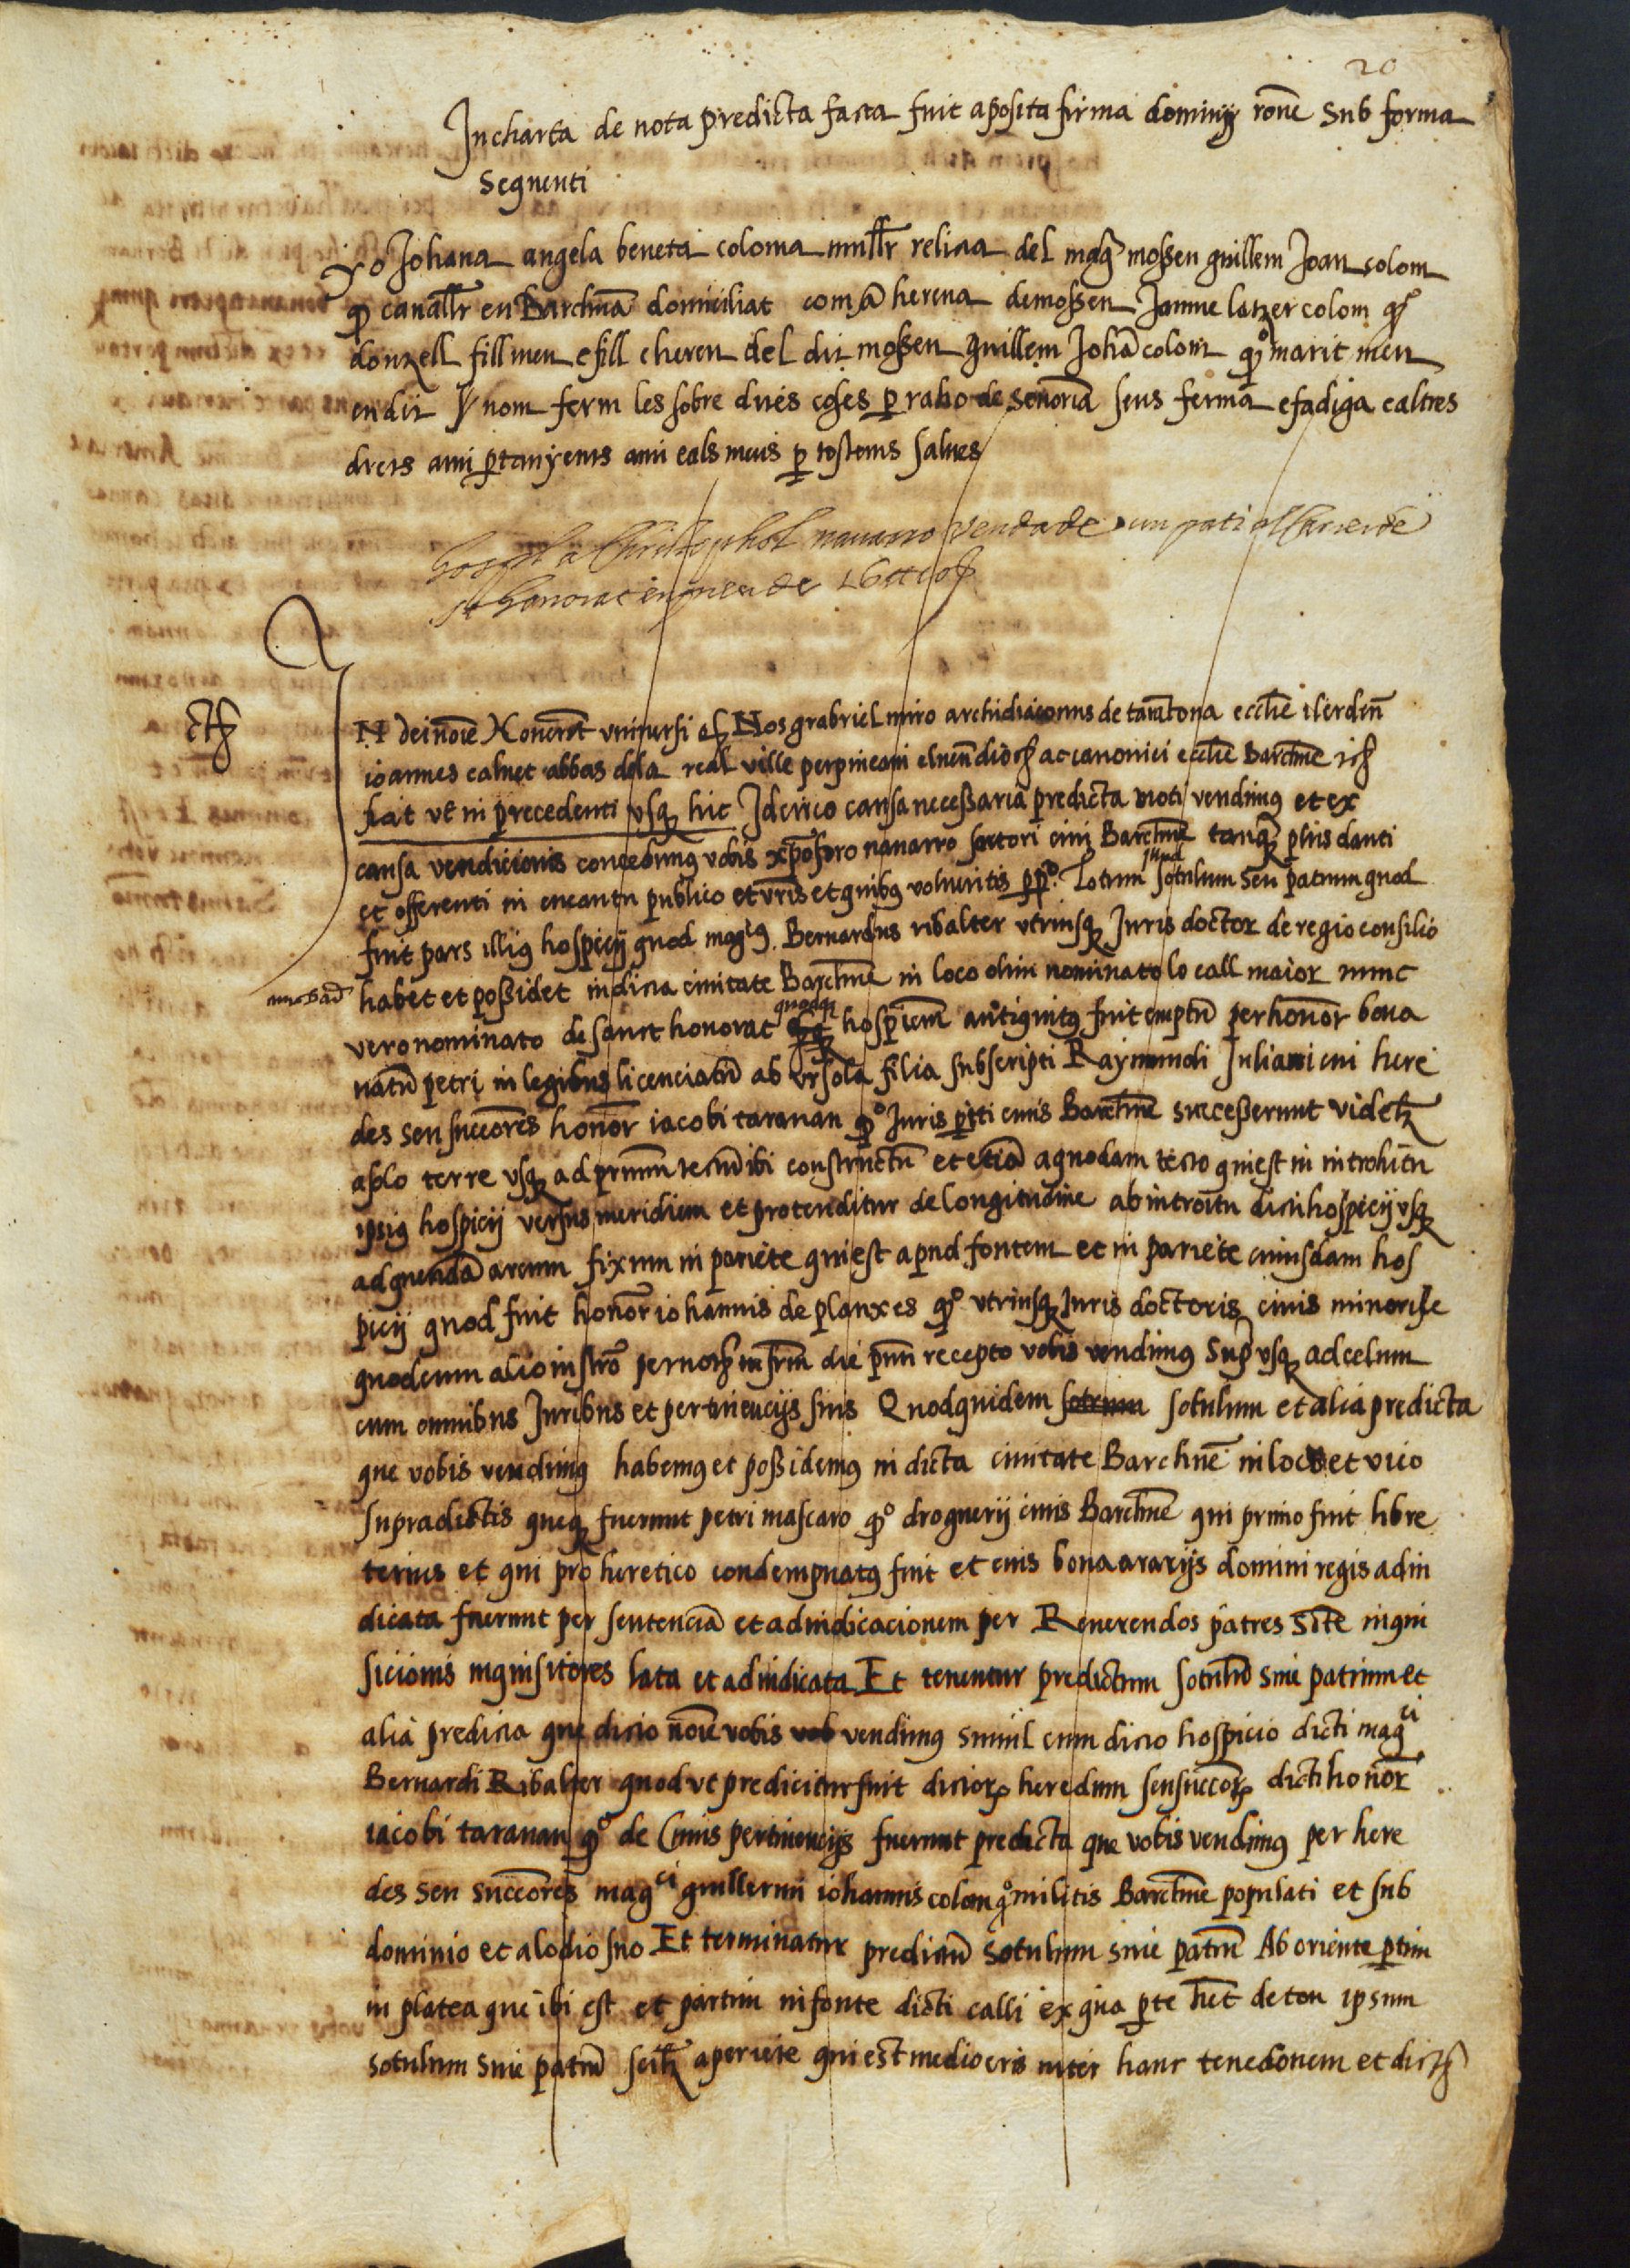 20
In charta de nota predicta facta fuit aposita firma dominij rone sub forma
Sequenti
Yo Johana angela beneta coloma mullr relicta del mag mossen guillem Joan colom
qº cauallr en Barchna domiciliat com a hereua de mossen Jaume latzer colom qº
donzell fill meu e fill e hereu del dit mossen guillem Joha colom qº marit meu
en dit nom ferm les sobre dites coses p raho de senoria sens ferma e fadiga e altres
drets a mi ptanyents a mi e als meus p tostems salues
a Christophol nauarro venda de un pati al carrer de
st honorat en preu de
N dei noie Nouerint vniuersi Nos grabriel miro archidiaconus de tarantona ecclie ilerden
ioannes caluet abbas dela real ville perpineani elnen dioc ac canonici ecclie Barchne
fiat vt in precedenti vsq hic Idcirco causa necessaria predicta moti vendimus et ex
causa vendicionis concedimus vobis xpoforo nauarro sartori ciui Barchne tanq plus danti
et offerenti in encantu publico et vris et quibus volueritis ppº. Totum illud sotulum seu patuum quod
fuit pars illius hospicij quod magcus Bernardus ribalter vtriusq Juris doctor de regio consilio
habet et possidet in dicta ciuitate Barchne in loco olim nominato lo call maior nunc
vero nominato de sanct honorat quodq hospicium antiquitus fuit emptu per honor bona
natu petri in legibus licenciatu ab vrsola filia subscripti Raymundi Juliani cui here
des seu succores honor iacobi tarauau qº Juris pti ciuis Barchne successerunt videtz
a solo terre vsq ad primum tectu ibi constructu et etia a quodam tecto qui est in introhitu
ipsius hospicij versus meridiem et protenditur de longitudine ab introitu dicti hospicij vsq
ad quenda arcum fixum in pariete qui est apud fontem et in pariete cuiusdam hos
picij quod fuit honor iohannis de planxes qº vtriusq Juris doctoris ciuis minorise
quod cum alio instro per not infrm die pnti recepto vobis vendimus Sup vsq ad celum
cum omnibus Juribus et pertinencijs suis Quodquidem sotrum sotulum et alia predicta
que vobis vendimus habemus et possidemus in dicta ciuitate Barchne in loco et vico
supradictis queq fuerunt petri mascaro qº droguerij ciuis Barchne qui primo fuit libre
terius et qui pro heretico condempnatus fuit et eius bona ararijs domini regis adiu
dicata fuerunt per sentencia et adiudicacionem per Reuerendos patres Ste inqui
sicionis inquisitores lata et adiudicata Et tenentur predictum sotulu siue patuum et
alia predicta que dicto noie vobis vob vendimus simul cum dicto hospicio dicti magci
Bernardi Ribalter quod vt predicitur fuit dictor heredum seu succor dicti honor
iacobi tarauau qº de Cuius pertinencijs fuerunt predicta que vobis vendimus per here
des seu succores magci guillermi iohannis colom qº militis Barchne populati et sub
dominio et alodio suo Et terminatur predictu sotulum siue patuu Ab oriente ptim
in platea que ibi est et partim in fonte dicti calli ex qua pte het de tou ipsum
sotulum siue patuu scilz a periete qui est mediocris inter hanc tenedonem et dict